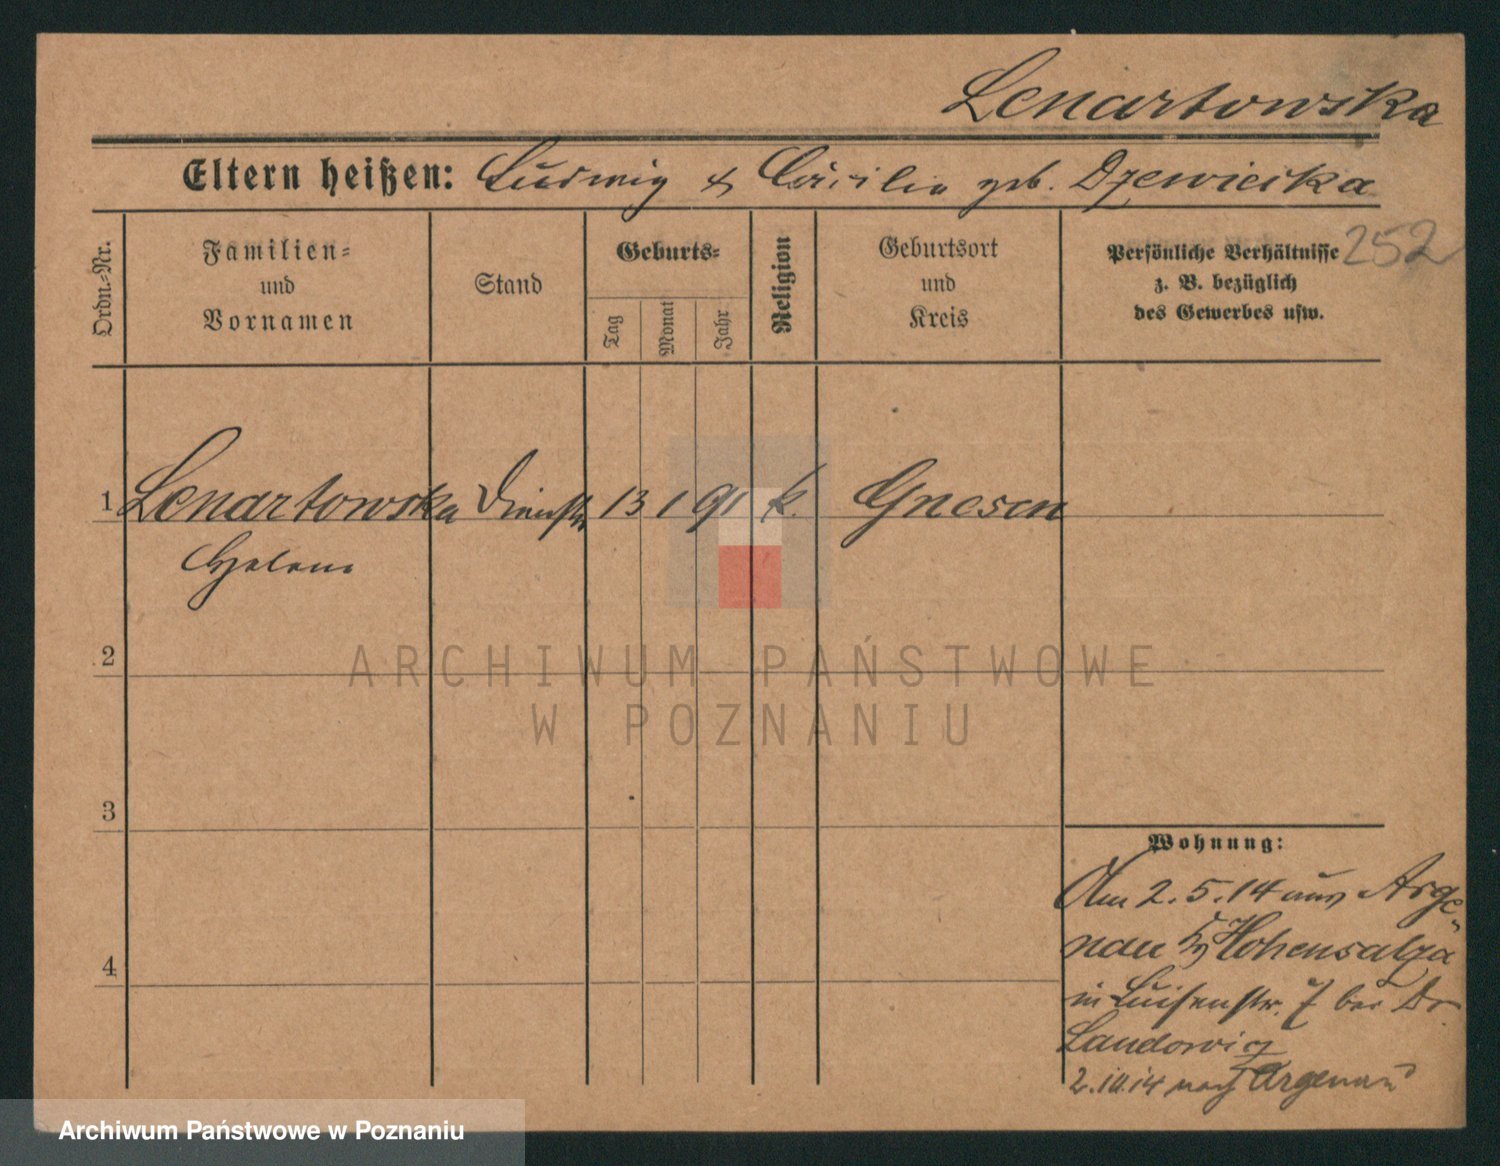 Lenartowska
Eltern heißen: Ludwig & Cäcilia geb. Dzewiecka
252
Ordn.-Nr.
Familien-
und
Vornamen
Stand
Geburts-
Tag
Monat
Jahr
Religion
Geburtsort
und
Kreis
Persönliche Verhältnisse
z. B. bezüglich
des Gewerbes usw.
1 Lenartowska Dienstm 13 1 91 k. Gnesen
Helene
2
ARCHIWUM PAŃSTWOWE
W POZNANIU
3
Wohnung:
Am 2.5.14 aus Arge-
nau Kr Hohensalza
in Luisenstr. 7 bei Dr
4
2.10.14 nach Argenau
Archiwum Państwowe w Poznaniu